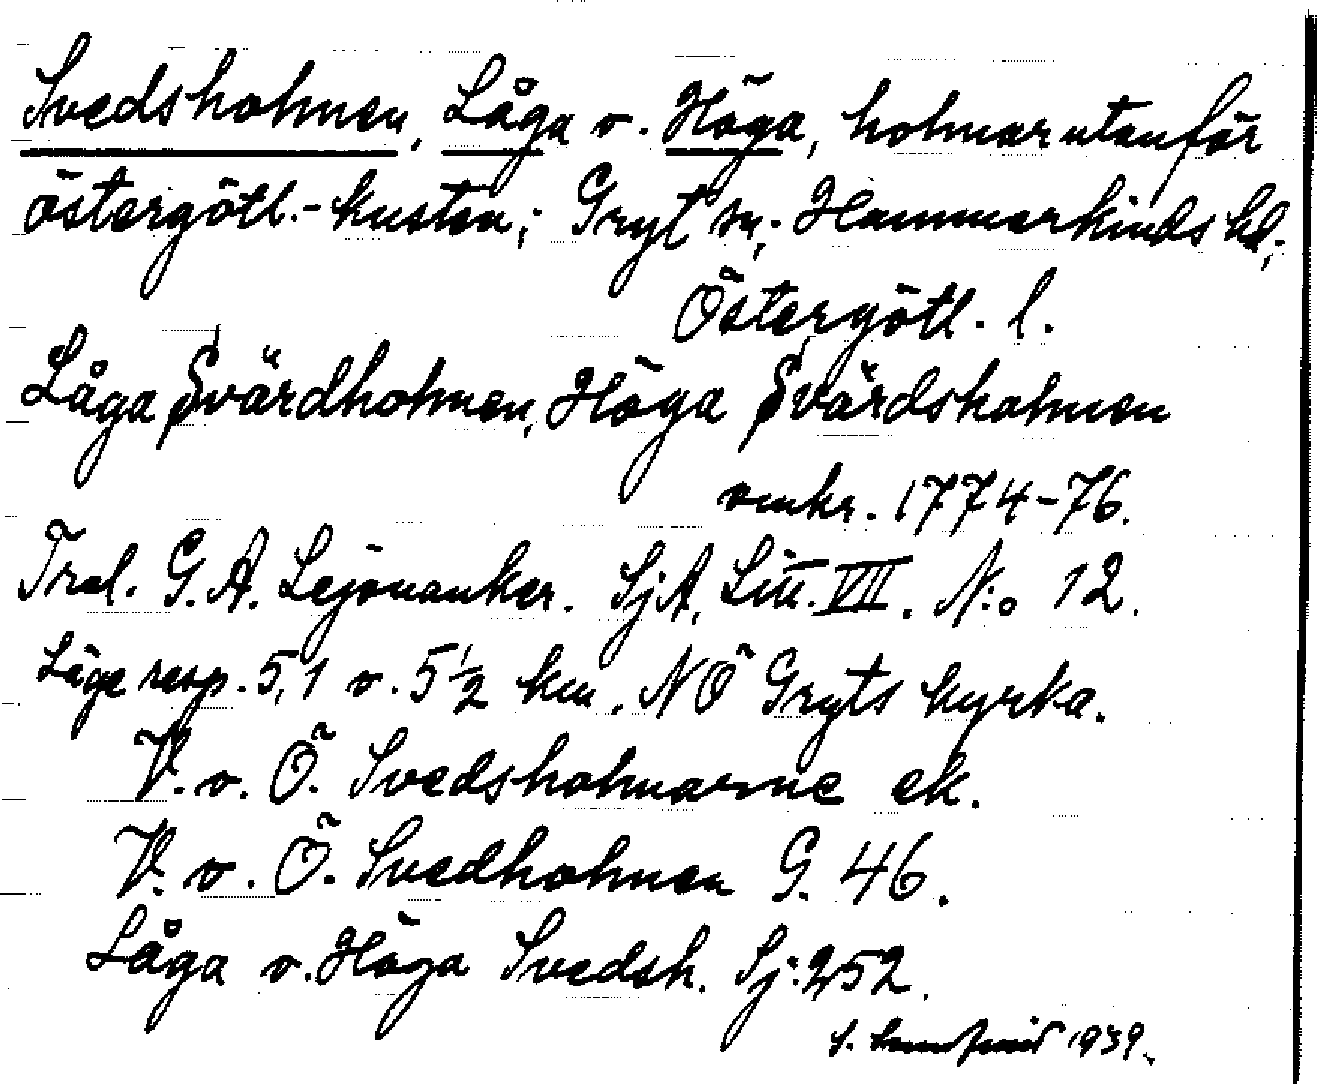 Svedsholmen, Låga o. Höga, holmar utanför
östergötl.-kusten; Gryt sn; Hammarkinds hd;
Östergötl. l.
Låga Svärdholmen, Höga Svärdsholmen
omkr. 1774-76.
Tral. G. A. Lejonanker. SjA, Litt. VII. N:o 12.
Läge resp. 5,1 o. 5 1/2 km. NÖ Gryts kyrka.
V. o. Ö. Svedsholmarne ek.
V. o. Ö. Svedholmen G. 46.
Låga o. Höga Svedsh. Sj: 252.
1939.